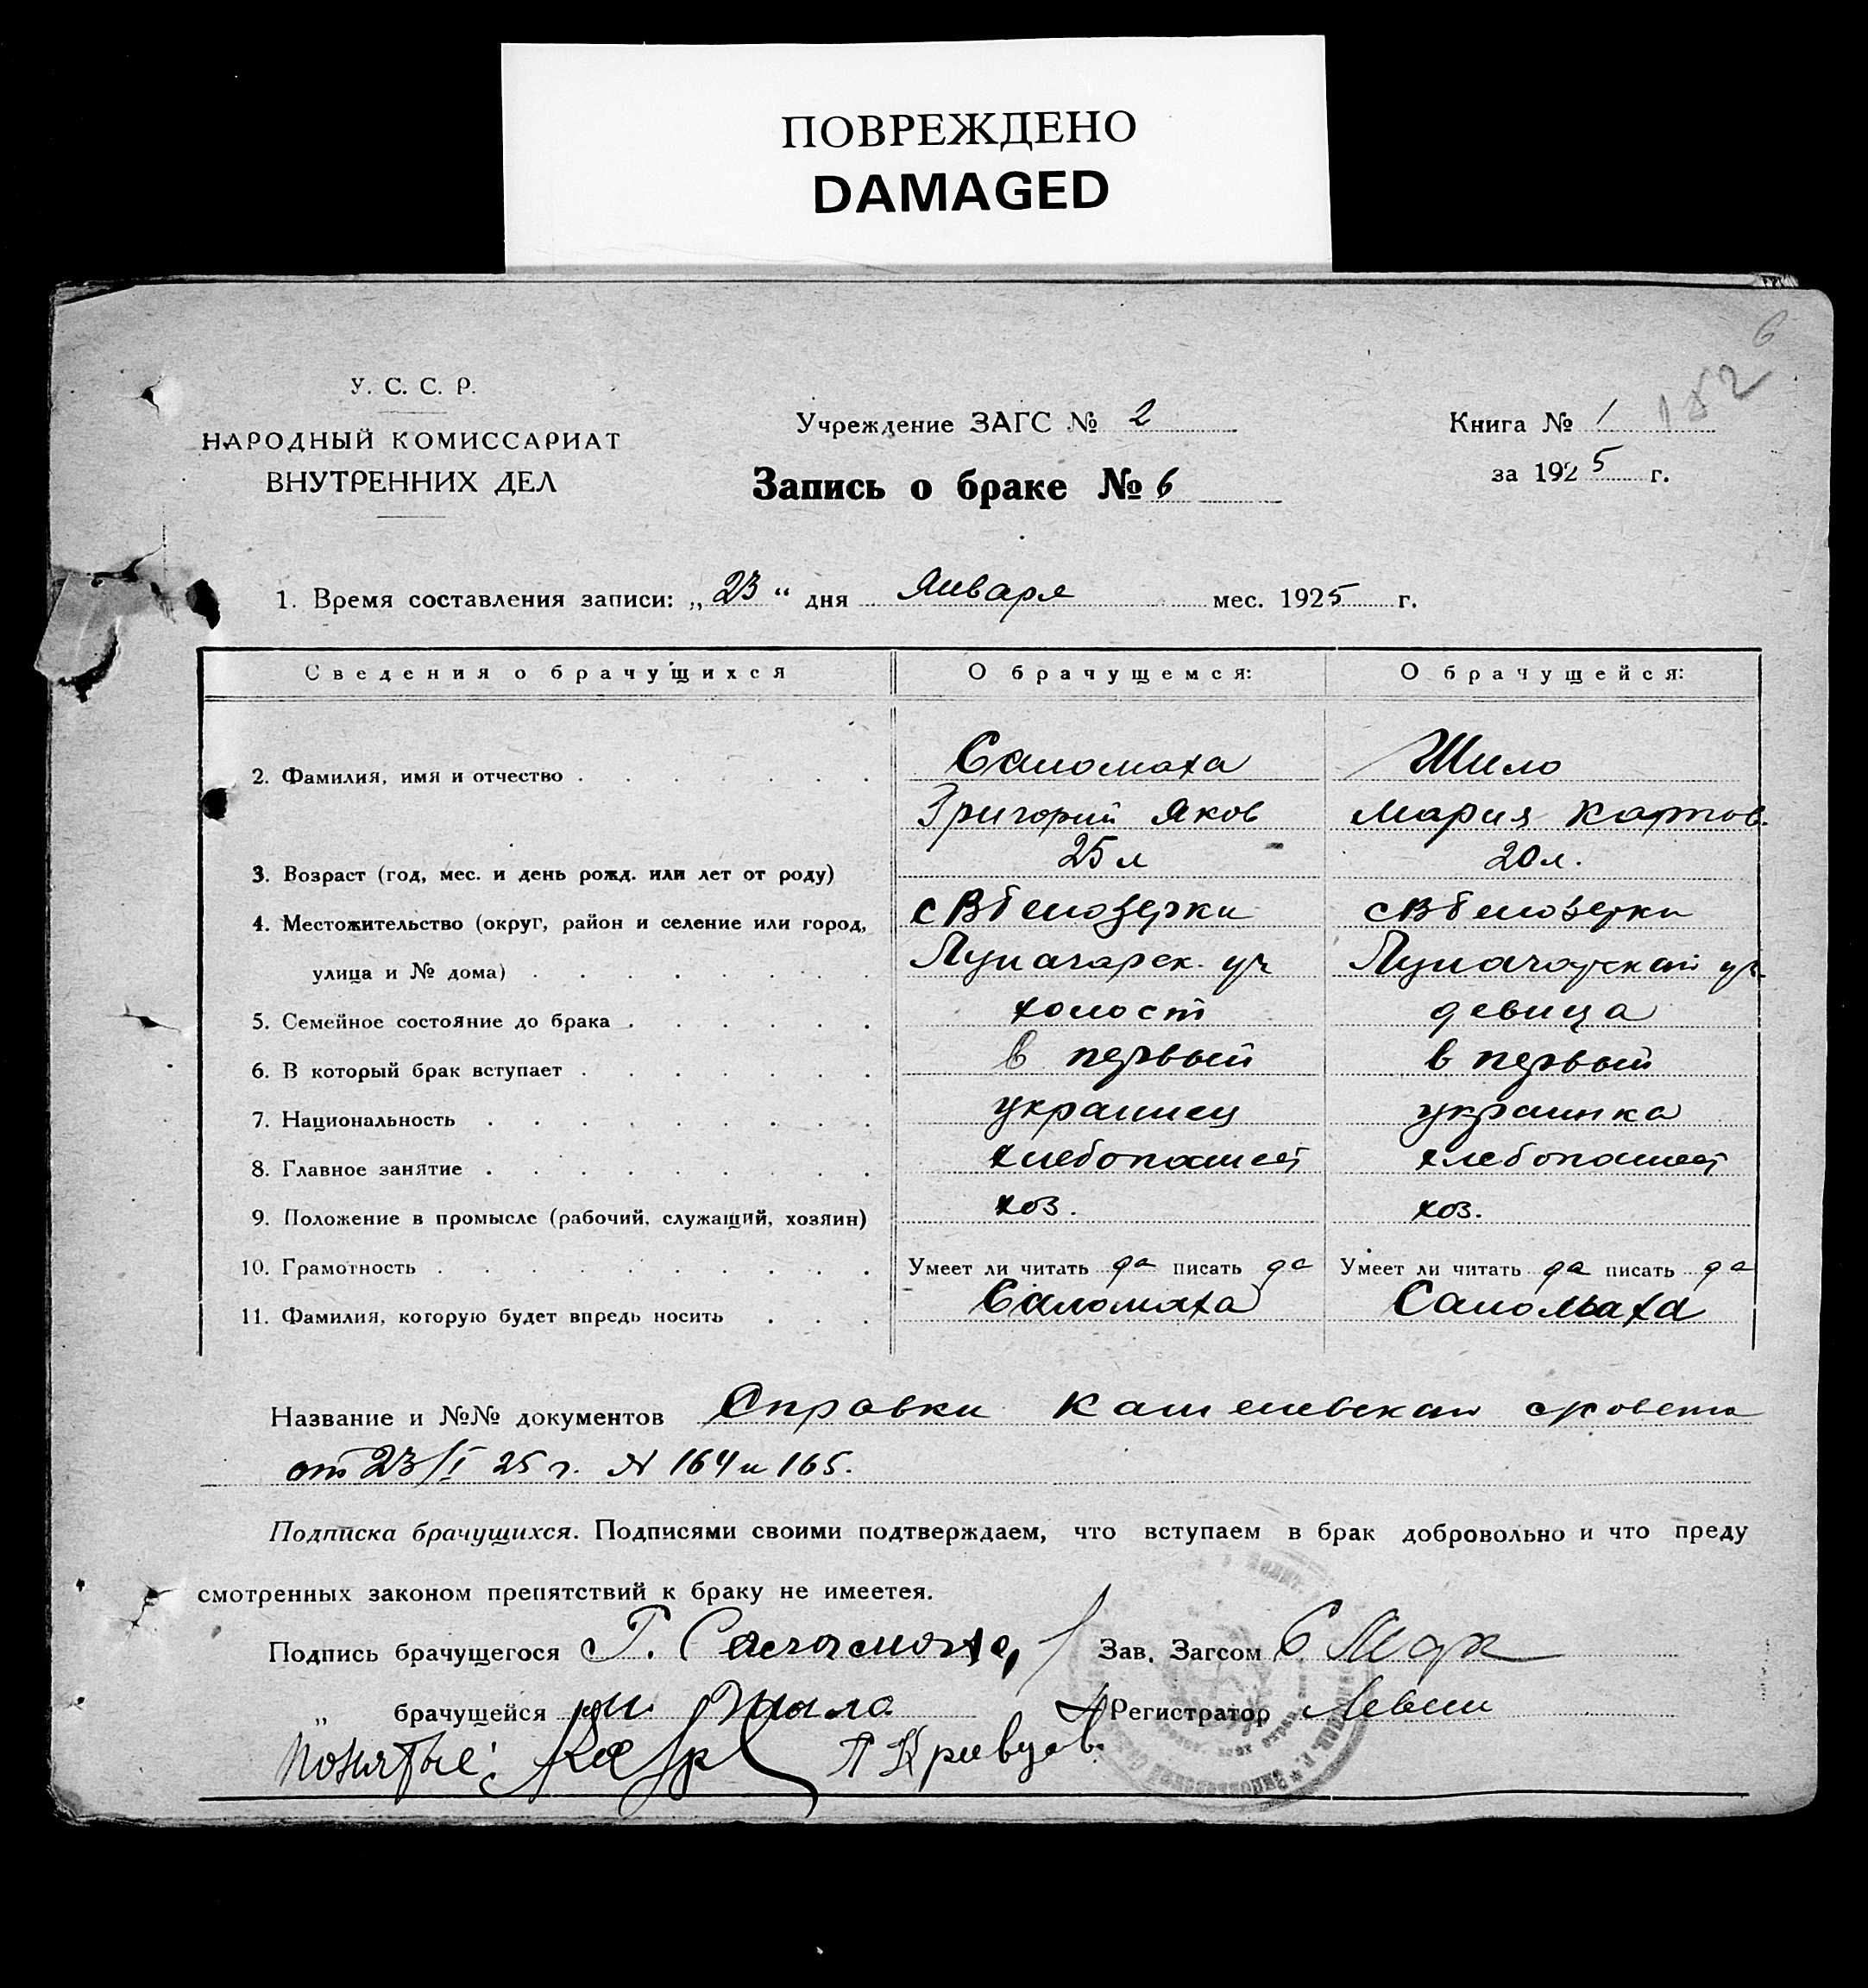 ПОВРЕЖДЕНО
DAMAGED
6
152
У. С. С. Р.
НАРОДНЫЙ КОМИССАРИАТ
ВНУТРЕННИХ ДЕЛ
Учреждение ЗАГС № 2
Запись о браке № 6
Книга № 1
за 1925 г.
1. Время составления записи: „23“ дня Января мес. 1925 г.
Сведения о брачущихся О брачущемся: О брачущейся:
2. Фамилия, имя и отчество Саломаха Шило
Григорий Яков Мария Карпов.
3. Возраст (год, мес. и день рожд. или лет от роду) 25 л 20 л.
4. Местожительство (округ, район и селение или город, с В Белозерки с В Белозерки
улица и № дома) Луначарск. ул Луначарской ул.
5. Семейное состояние до брака холост девица
6. В который брак вступает в первый в первый
7. Национальность украинец украинка
8. Главное занятие хлебопашест хлебопашест
9. Положение в промысле (рабочий, служащий, хозяин) хоз. хоз.
10. Грамотность Умеет ли читать да писать да Умеет ли читать да писать да
11. Фамилия, которую будет впредь носить Саломаха Саломаха
Название и №№ документов Справки
от 23/I 25 г. N 164 и 165.
Подписка брачущихся. Подписями своими подтверждаем, что вступаем в брак добровольно и что преду
смотренных законом препятствий к браку не имеетея.
Подпись брачущегося Г. Саломаха Зав. Загсом
„ брачущейся Шыло Регистратор Левин
Понятые: П Кривцов.